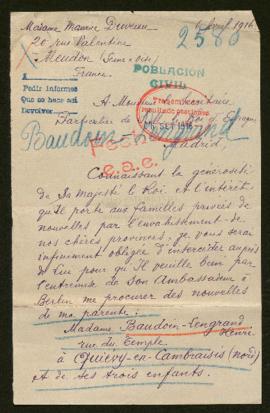 Madame Maurice Druveu
20 rue Valentine
Meudon (Seine & Oise)
France.
1916
2580
POBLACIÓN
CIVIL
Pedir informes
Que se hace así
Devolver
A Monsieur le Secrétaire
Particulier de le Roi d'Espagne
Madrid
Baudoin-Lengrand
Connaissant la générosité
de Sa Majesté le Roi et l'intérêt
qu'Il porte aux familles privées de
nouvelles par l'envahissement de
nos chères provinces, je vous serai
infiniment obligée d'intercéder auprès
de Lui pour qu'Il veuille bien par
l'entremise de Son Ambassadeur à
Berlin me procurer des nouvelles
de ma parente:
Madame Baudoin-Lengrand Henri
rue du Temple
à Quiévy-en-Cambraisis (Nord)
et de ses trois enfants.